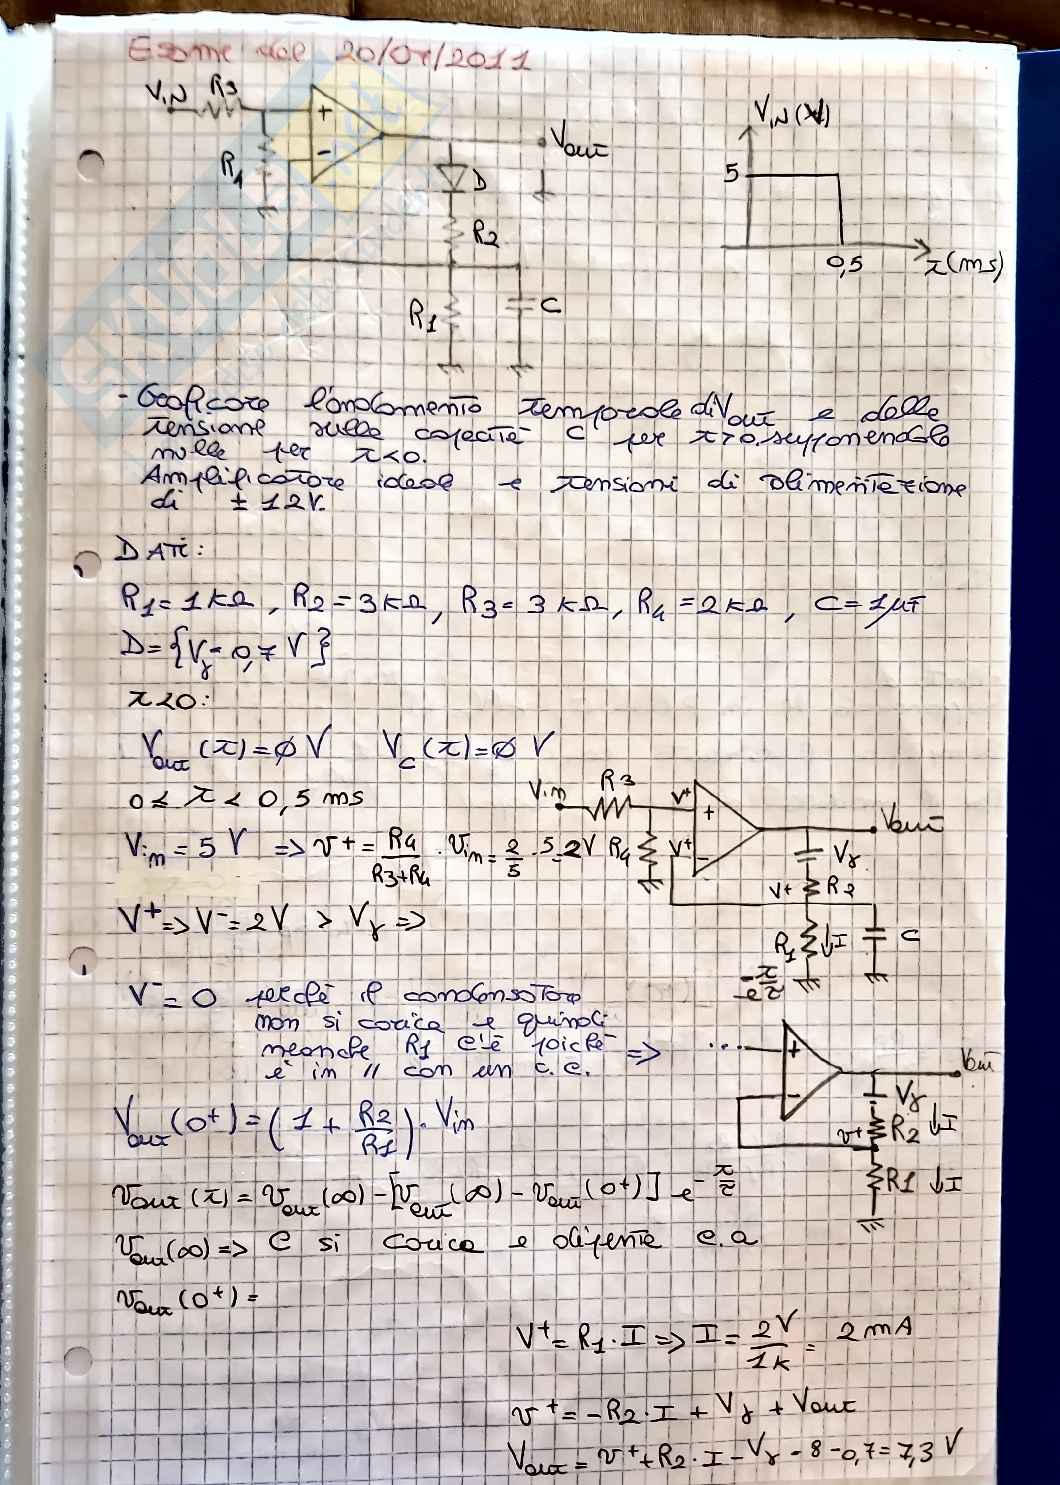 Esame del 20/07/2011
VIN R3
+
-
Vout
R4
D
R2
R1
C
VIN (V)
5
0,5
t(ms)
- Graficare l'andamento temporale di Vout e della
tensione sulla capacità C per t>0. supponendolo
nulla per t<0.
Amplificatore ideale e tensioni di alimentazione
di ± 12V.
DATI:
R1=1KΩ, R2=3KΩ, R3=3KΩ, R4=2KΩ, C=1μF
D={Vγ=0,7 V}
t<0:
Vout (t)=ø V Vc (t)=ø V
0≤ t < 0,5 ms
Vin = 5 V => v+ = R4/R3+R4 · Vin = 2/5 · 5=2V
Vin R3
V+
+
R4
V+
-
Vout
Vγ
V+ R2
R1 ↓I C
V+ => V-=2V > Vγ =>
V-=0 perché il condensatore
non si carica e quindi
neanche R1 c'è poiché =>
è in // con un c.c.
-e t/τ
... +
-
Vout
Vγ
v+ R2 ↓I
R1 ↓I
Vout (0+) = (1 + R2/R1) · Vin
Vout (t) = Vout (∞) - [Vout (∞) - Vout (0+)] e- t/τ
Vout (∞) => C si carica e diventa c.a
Vout (0+) =
V+ = R1 · I => I = 2V/1K = 2mA
v+ = -R2 · I + Vγ + Vout
Vout = v+ + R2 · I - Vγ = 8 - 0,7 = 7,3 V